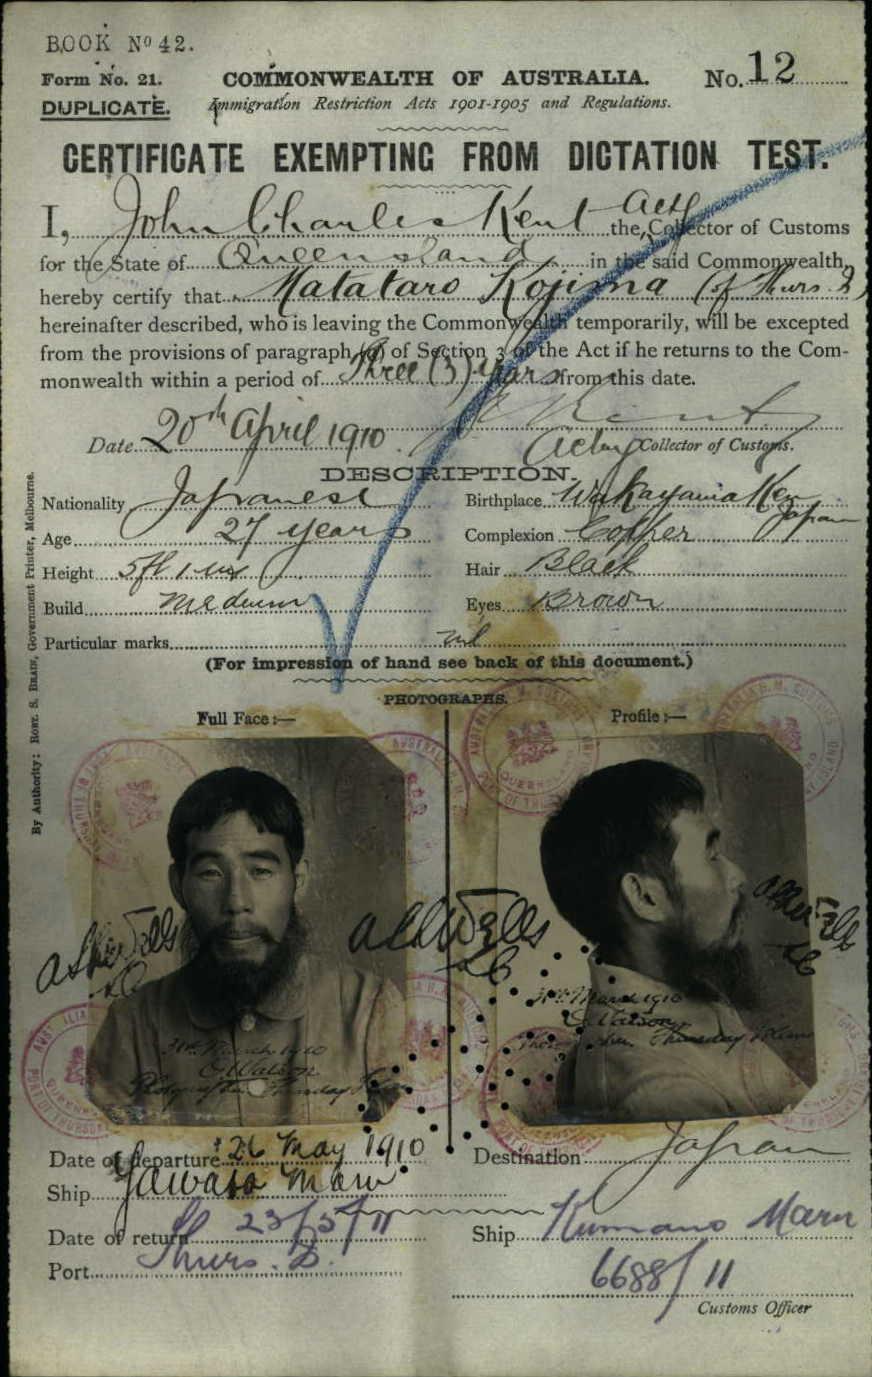 BOOK Nº 42.
Form No. 21.
COMMONWEALTH OF AUSTRALIA.
No. 12
DUPLICATE.
Immigration Restriction Acts 1901-1905 and Regulations.
CERTIFICATE EXEMPTING FROM DICTATION TEST.
I, John Charles Kent the Actg Collector of Customs
for the State of Queensland in the said Commonwealth,
hereby certify that Matataro Kojima (of Thurs. I)
hereinafter described, who is leaving the Commonwealth temporarily, will be excepted
from the provisions of paragraph (a) of Section 3 of the Act if he returns to the Com-
monwealth within a period of Three (3) years from this date.
Kent
Date 20th April 1910
Acting Collector of Customs.
DESCRIPTION.
Nationality Japanese
Birthplace Wakayama Ken Japan
Age 27 years
Complexion Copper
Height 5ft 1 ins
Hair Black
Build Medium
Eyes Brown
Particular marks nil
(For impression of hand see back of this document.)
PHOTOGRAPHS.
Full Face :—
Profile :—
31st March 1910
C. Watson
Photographer Thursday Island
31st March 1910
C. Watson
Photographer Thursday Island
Date of departure 26 May 1910
Destination Japan
Ship Yawata Maru
Date of return 23/5/11
Ship Kumano Maru
Port Thurs. I.
6688/11
Customs Officer
By Authority: ROBT. S. BRAIN, Government Printer, Melbourne.